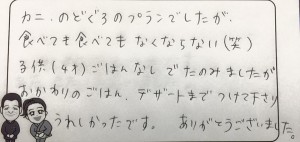 カニ、のどぐろのプランでしたが、
食べても食べても なくならない(笑)
子供(4才)ごはんなし でたのみましたが
おかわりのごはん、デザートまで つけて下さり
うれしかったです。 ありがとうございました。